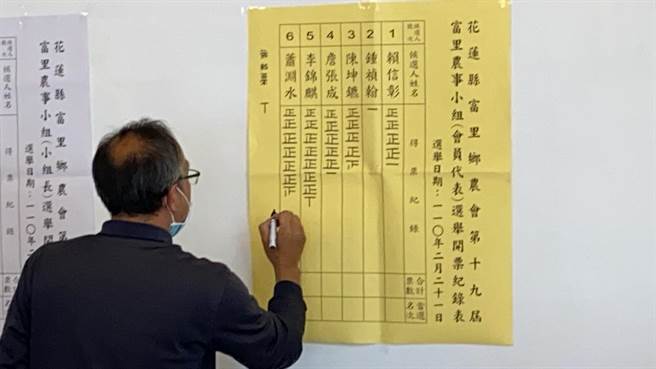 花蓮縣富里鄉農會第十九屆
富里農事小組(會員代表)選舉開票紀錄表
選舉日期：一一○年二月二十一日
候選人號次 候選人姓名 得票紀錄 合計票數 當選名次
1 賴信彰 正正正正一
2 鍾禎翰 一
3 陳坤
4 詹張成 正正正正一
5 李錦麒 正正正正正正丅
6 蕭淵水 正正正正正正
丅
花蓮縣富里鄉農會第
富里農事小組(小組長)選舉
選舉日期：一一○年二
候選人姓名 得票紀錄